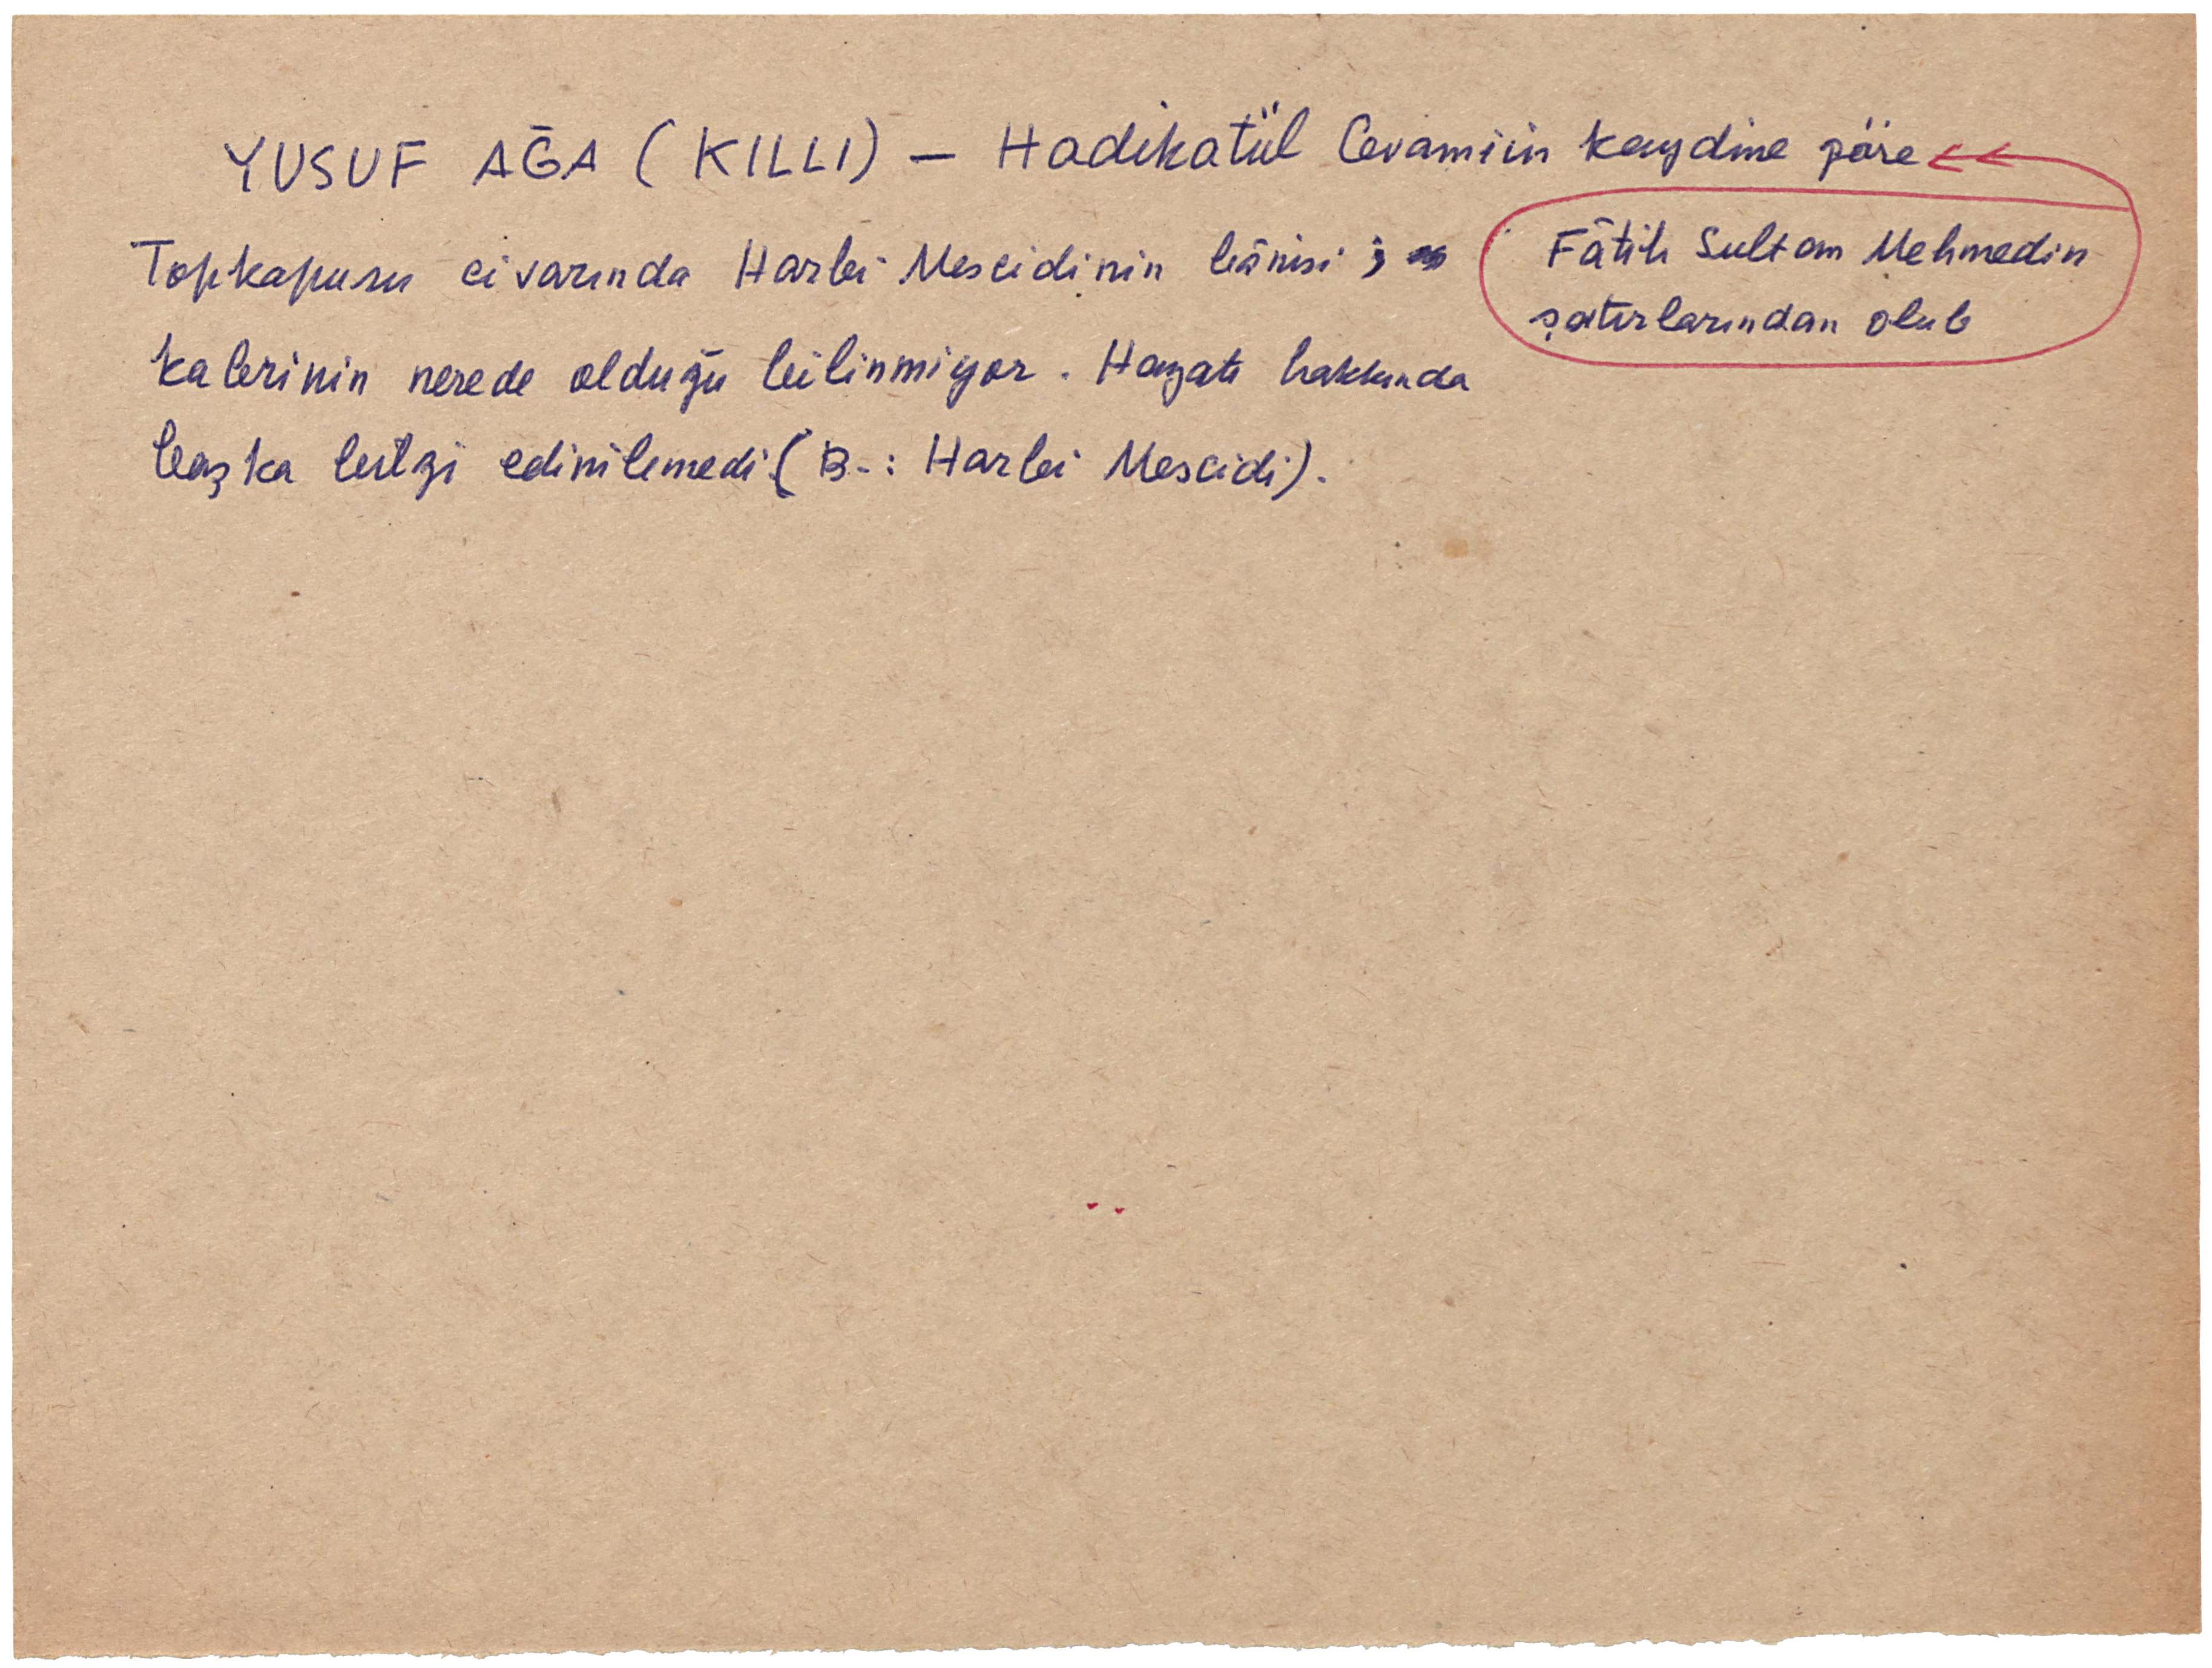 YUSUF AĞA (KILLI) — Hadikatül Cevamiin kaydine göre
Fâtih Sultan Mehmedin
şatırlarından olub
Topkapusu civarında Harbi Mescidinin bânisi;
kabrinin nerede olduğu bilinmiyor. Hayatı hakkında
başka bilgi edinilemedi (B.: Harbi Mescidi).